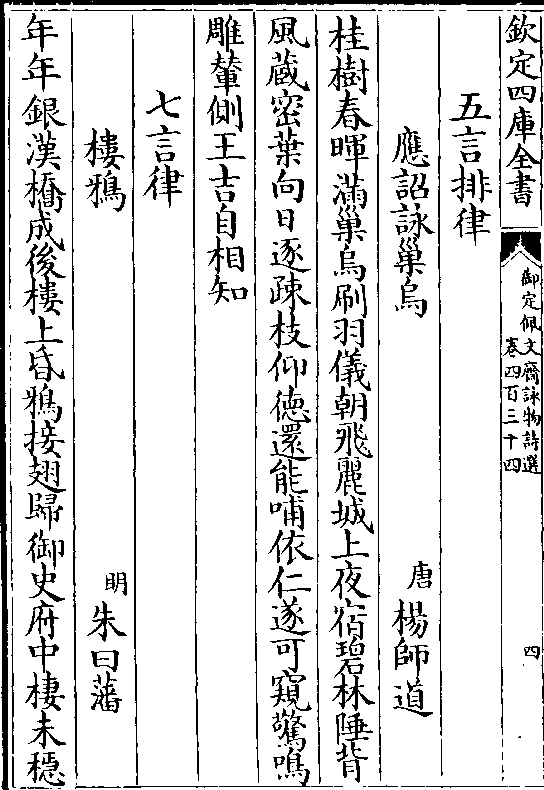 欽定四庫全書
御定佩文齋詠物詩選
卷四百三十四
四
五言排律
應詔詠巢烏
唐 楊師道
桂樹春暉滿巢烏刷羽儀朝飛麗城上夜宿碧林陲背
風藏密葉向日逐疎枝仰德還能哺依仁遂可窺驚鳴
雕輦側王吉自相知
七言律
棲鴉
明 朱曰藩
年年銀漢橋成後樓上昏鴉接翅歸御史府中棲未穩